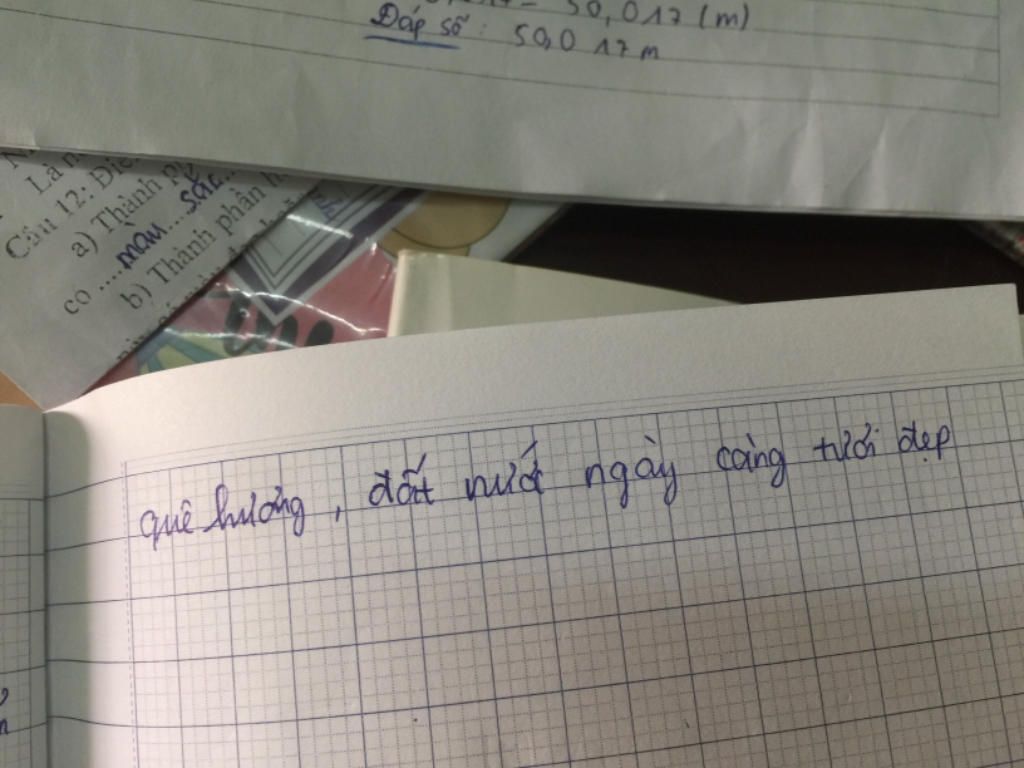 50,017 (m)
Đáp số : 50,017 m
Là
Câu 12:
a) Thành
co ... màu ... sắc...
b) Thành phần
quê hương, đất nước ngày càng tươi đẹp